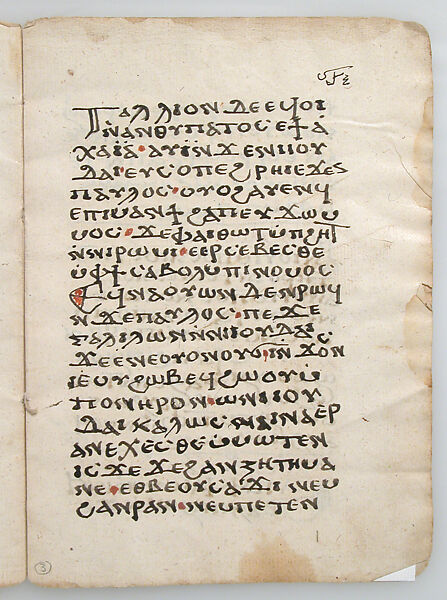 ⲅⲁⲗⲗⲓⲟⲛ ⲇⲉ ⲉϥⲟⲓ
ⲛⲁⲛⲑⲩⲡⲁⲧⲟⲥ ⲉϯⲁ
ⲭⲁⲓⲁ· ⲁⲩⲓ ⲛϫⲉ ⲛⲓⲓⲟⲩ
ⲇⲁⲓ· ⲉⲩⲥⲟⲡ ⲉϩⲣⲏⲓ ⲉϫⲉⲛ
ⲡⲁⲩⲗⲟⲥ· ⲟⲩⲟϩ ⲁⲩⲉⲛϥ
ⲉⲡⲓⲙⲁⲛϯϩⲁⲡ ⲉⲩϫⲱⲙ
ⲙⲟⲥ· ϫⲉ ⲫⲁⲓ ⲑⲱⲧ ⲙⲡϩⲏⲧ
ⲛⲛⲓⲣⲱⲙⲓ· ⲉⲉⲣⲥⲉⲃⲉⲥⲑⲉ
ⲙⲫϯ ⲥⲁⲃⲟⲗ ⲙⲡⲓⲛⲟⲙⲟⲥ
ⲉϥⲛⲁⲟⲩⲱⲛ ⲇⲉ ⲛⲣⲱϥ
ⲛϫⲉ ⲡⲁⲩⲗⲟⲥ· ⲡⲉϫⲉ
ⲅⲁⲗⲗⲓⲱⲛ ⲛⲛⲓⲓⲟⲩⲇⲁⲓ
ϫⲉ ⲉⲛⲉⲟⲩⲟⲛ ⲟⲩϭⲓ ⲛϫⲟⲛⲥ
ⲓⲉ ⲟⲩϩⲱⲃ ⲉϥϩⲱⲟⲩ ⲙ
ⲡⲟⲛⲏⲣⲟⲛ· ⲱ ⲛⲓⲓⲟⲩ
ⲇⲁⲓ ⲕⲁⲗⲱⲥ ⲛⲁⲓⲛⲁⲉⲣ
ⲁⲛⲉⲭⲉⲥⲑⲉ ⲙⲙⲱⲧⲉⲛ
ⲓⲥϫⲉ ϫⲉ ϩⲁⲛⲍⲏⲧⲏⲙⲁ
ⲛⲉ· ⲉⲑⲃⲉ ⲟⲩⲥⲁϫⲓ ⲛⲉⲙ
ϩⲁⲛⲣⲁⲛ· ⲛⲉⲙ ⲡⲉⲧⲉⲛ
3